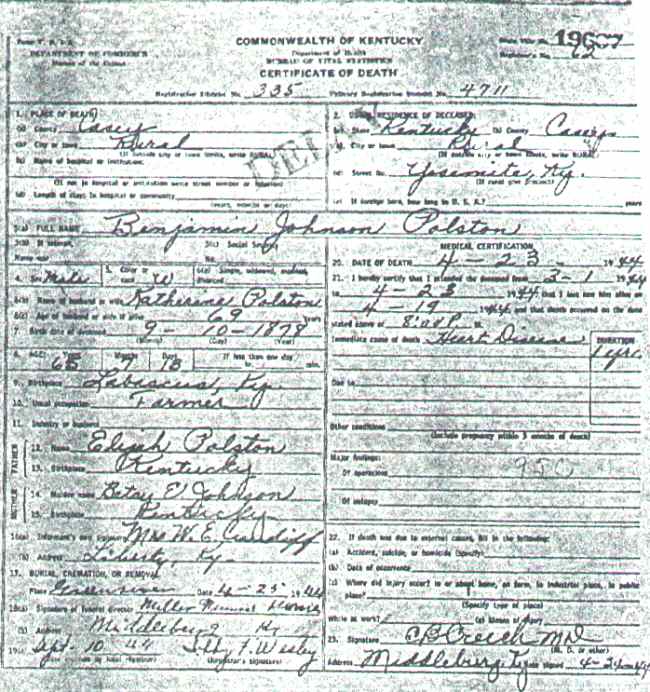 COMMONWEALTH OF KENTUCKY
DEPARTMENT OF COMMERCE
Department of Health
Bureau of the Census
BUREAU OF VITAL STATISTICS
CERTIFICATE OF DEATH
Registrar's No. 62
Registration District No. 335 Primary Registration District No. 4711
1. PLACE OF DEATH
(a) County Casey
(b) City or town Rural
(If outside city or town limits, write RURAL)
(c) Name of hospital or institution:
(If not in hospital or institution write street number or location)
(d) Length of stay: In hospital or community
(years, months or days)
2. USUAL RESIDENCE OF DECEASED:
(a) State Kentucky (b) County Casey
(c) City or town Rural
(If outside city or town limits, write RURAL)
(d) Street No. Yosemite, Ky.
(If rural give precinct)
(e) If foreign born, how long in U. S. A.? years
3(a) FULL NAME Benjamin Johnson Polston
3(b) If veteran, 3(c) Social Security
Name war No.
4. Sex Male 5. Color or race W 6(a) Single, widowed, married, Divorced
6(b) Name of husband or wife Katherine Polston
6(c) Age of husband or wife if alive 69 years
7. Birth date of deceased 9 - 10 - 1878
(Month) (Day) (Year)
8. AGE: Years 65 Months 7 Days 13 If less than one day
hr. min.
9. Birthplace Ky.
10. Usual occupation Farmer
11. Industry or business
FATHER
12. Name Elijah Polston
13. Birthplace Kentucky
MOTHER
14. Maiden name Betsy E Johnson
15. Birthplace Kentucky
16(a) Informant's own signature Mrs W. E. Cundiff
(b) Address Liberty, Ky.
17. BURIAL, CREMATION, OR REMOVAL
Place Date 4-25 1944
18(a) Signature of funeral director
(b) Address Middleburg Ky
19(a) Sept. 10 44 Wesley
(Date received by local registrar) (Registrar's signature)
MEDICAL CERTIFICATION
20. DATE OF DEATH 4 - 23 1944
21. I hereby certify that I attended the deceased from 3-1 1944
to 4 - 23 1944 that I last saw him alive on
4 - 19 1944, and that death occurred on the date
stated above at 8:00 P M.
Immediate cause of death Heart Disease
DURATION
1 yr.
Due to
Other conditions
(Include pregnancy within 3 months of death)
Major findings:
Of operations
95C
Of autopsy
22. If death was due to external causes, fill in the following:
(a) Accident, suicide, or homicide (specify)
(b) Date of occurrence
(c) Where did injury occur? In or about home, on farm, in industrial place, in public
place?
(Specify type of place)
While at work? (e) Means of injury
23. Signature C B Creech MD
(M. D. or other)
Address Middleburg Ky Date signed 4-24-44